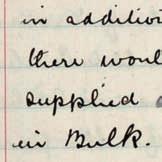 in additio
there woul
supplied
in Bulk.